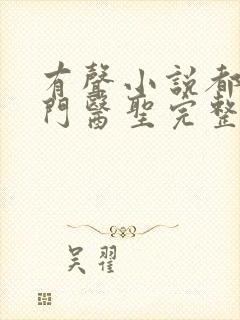 有聲小說都
門醫聖完整
吴翟